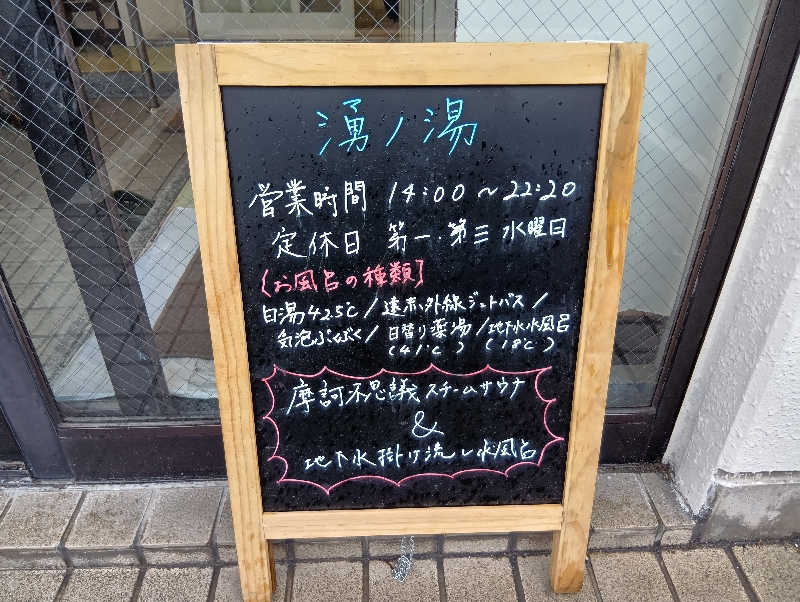 湧ノ湯
営業時間 14:00～22:20
定休日 第一・第三 水曜日
〔お風呂の種類〕
白湯42.5℃/遠赤外線ジェットバス/
気泡ぶくぶく/日替り薬湯/地下水水風呂
(41℃) (18℃)
摩訶不思議スチームサウナ
&
地下水掛け流し水風呂